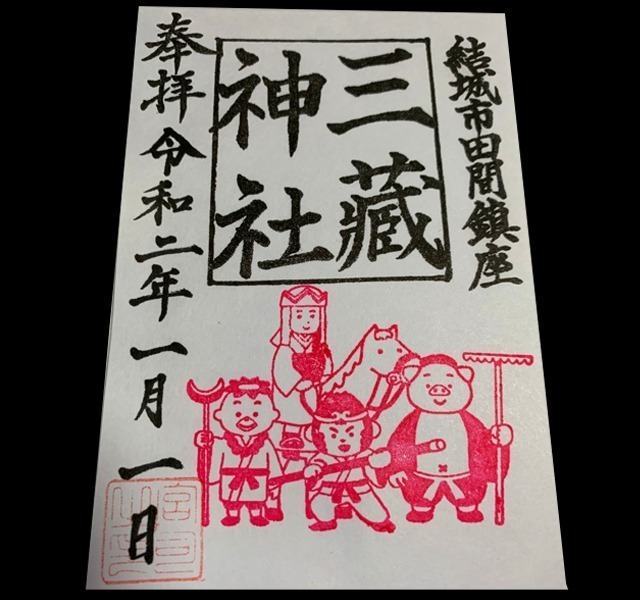 結城市田間鎮座
三蔵
神社
奉拝 令和二年一月一日